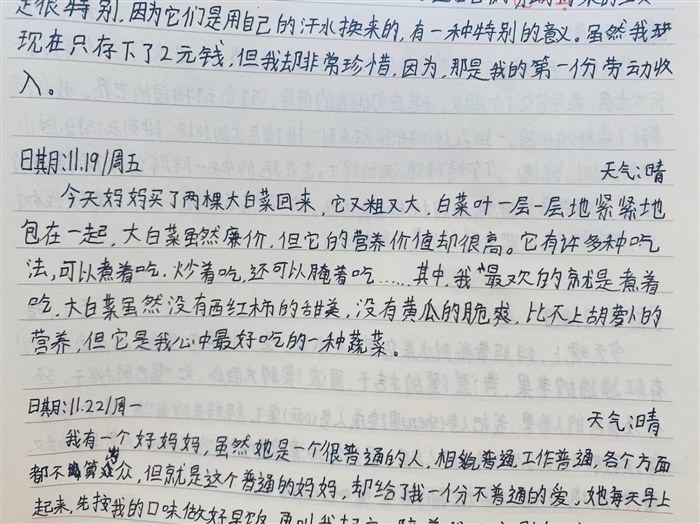 是很特别,因为它们是用自己的汗水换来的,有一种特别的意义。虽然我
现在只存下了2元钱,但我却非常珍惜,因为,那是我的第一份劳动收
入。
日期:11.19/周五 天气:晴
今天妈妈买了两棵大白菜回来,它又粗又大,白菜叶一层一层地紧紧地
包在一起,大白菜虽然廉价,但它的营养价值却很高。它有许多种吃
法,可以煮着吃,炒着吃,还可以腌着吃……其中,我最欢的就是煮着
吃,大白菜虽然没有西红柿的甜美,没有黄瓜的脆爽,比不上胡萝卜的
营养,但它是我心中最好吃的一种蔬菜。
日期:11.22/周一 天气:晴
我有一个好妈妈,虽然她是一个很普通的人,相貌普通,工作普通,各个方面
都不算出众,但就是这个普通的妈妈,却给了我一份不普通的爱,她每天早上
起来,先按我的口味做好早饭,再叫我起床,